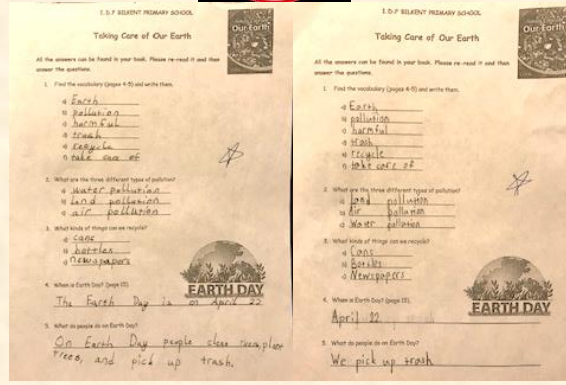 I.D.F BILKENT PRIMARY SCHOOL
Our Earth
Taking Care of Our Earth
All the answers can be found in your book. Please re-read it and then
answer the questions.
1. Find the vocabulary (pages 4-5) and write them.
a) Earth
b) pollution
c) harmful
d) trash
e) recycle
f) take care of
2. What are the three different types of pollution?
a) water pollution
b) land pollution
c) air pollution
3. What kinds of things can we recycle?
a) cans
b) bottles
c) newspapers
EARTH DAY
4. When is Earth Day? (page 15)
The Earth Day is on April 22
5. What do people do on Earth Day?
On Earth Day people clean rivers, plant
trees, and pick up trash.
I.D.F BILKENT PRIMARY SCHOOL
Our Earth
Taking Care of Our Earth
All the answers can be found in your book. Please re-read it and then
answer the questions.
1. Find the vocabulary (pages 4-5) and write them.
a) Earth
b) pollution
c) harmful
d) trash
e) recycle
f) take care of
2. What are the three different types of pollution?
a) Land pollution
b) Air pollution
c) Water pollution
3. What kinds of things can we recycle?
a) Cans
b) Bottles
c) Newspapers
EARTH DAY
4. When is Earth Day? (page 15)
April 22
5. What do people do on Earth Day?
We pick up trash